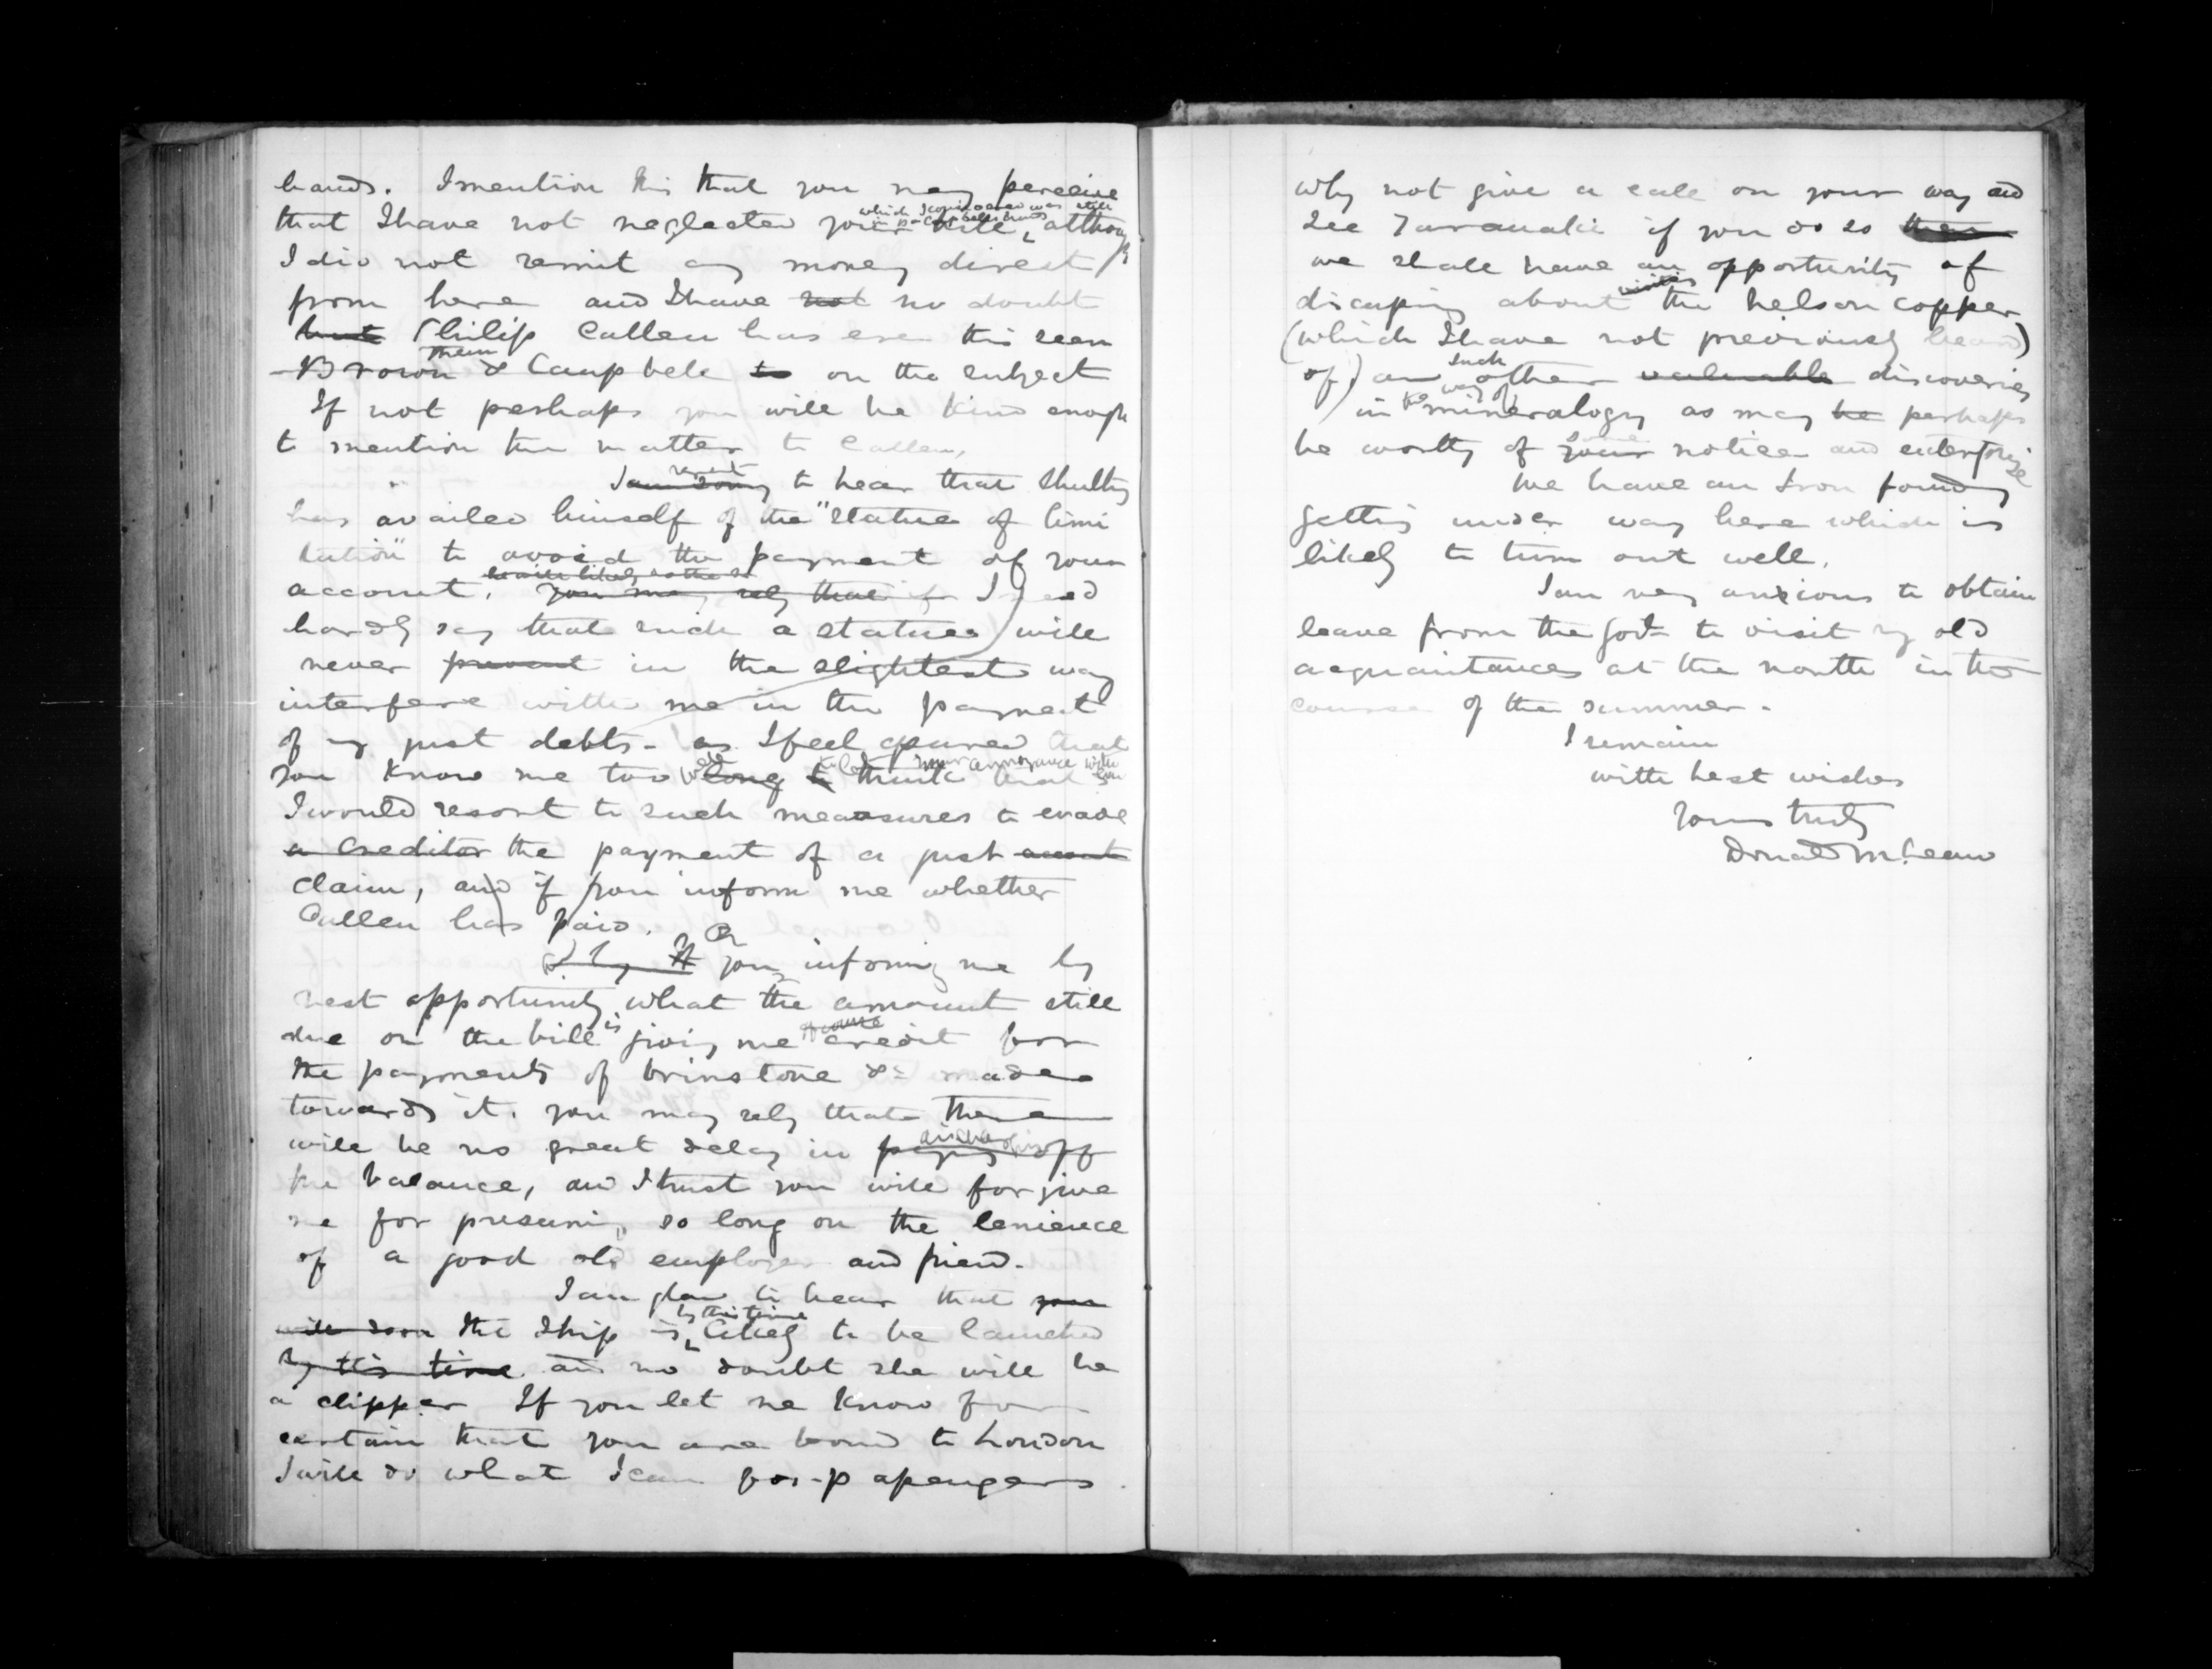 hands. I mention this that you may perceive
which I considered was still
in B & Campbells hands
that I have not neglected your bill, although
I did not remit any money direct
from here and I have not no doubt
but Philip Callen has ere this seen
them
Brown & Campbell to on the subject
If not perhaps you will be kind enough
to mention the matter to Callen,
regret
I am sorry to hear that Shultz
has availed himself of the "statue of limi
tation" to avoid the payment of your
account. you may rely that if I need
hardly say that such a statue will
never prevent in the slightest way
interfere with me in the payment
of my just debts - as I feel assured that
well
you know me too long to think that
I would resort to such measures to evade
a creditor the payment of a just amount
claim, and if you inform me whether
Callen has paid.
On
If you informing me by
next opportunity what the amount still
due on the bill is giving me credit for
of course
the payments of brimstone &c made
towards it. you may rely that there
discharging
will be no great delay in paying off
the balance, and I trust you will forgive
me for presuming so long on the lenience
of a good old employer and friend.
I am glad to hear that you
by this time
will soon the Ship is likely to be launched
by this time and no doubt she will be
a clipper If you let me know for
certain that you are bound to London
I will do what I can for passengers
why not give a call on your way and
see Taranaki if you do so then
we shall have an opportunity of
discussing about the Nelson copper
(which I have not previously heard)
such
of) and other valuable discoveries
the way of
in mineralogy as may be perhaps
be worthy of your notice and enterprize
We have an Iron foundry
getting under way here which is
likely to turn out well.
I am very anxious to obtain
leave from the Govt to visit my old
acquaintances at the north in the
course of the summer.
I remain
with best wishes
Yours truly
Donald McLean